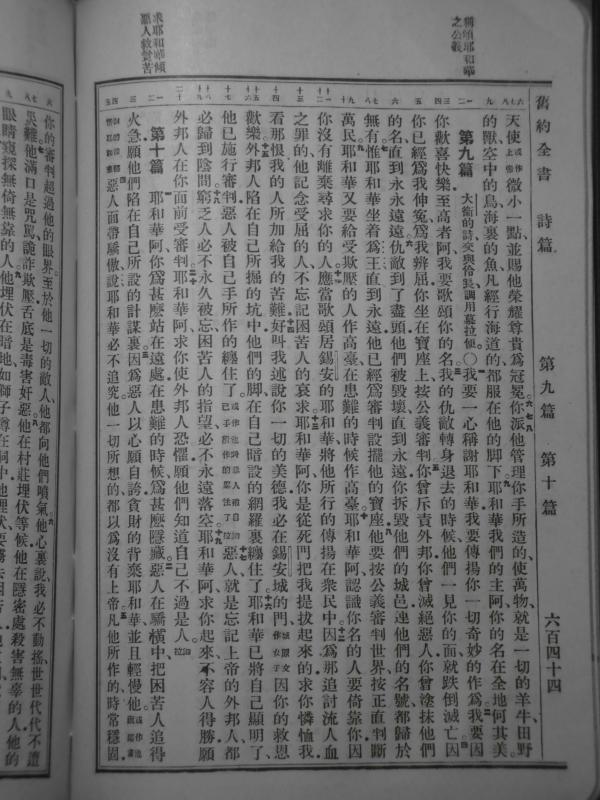 舊約全書 詩篇 第九篇 第十篇 六百四十四
稱頌耶和華
之公義
天使或作上帝微小一點並賜他榮耀尊貴爲冠冕你派他管理你手所造的使萬物就是一切的羊牛田野
的獸空中的鳥海裏的魚凡經行海道的都服在他的脚下耶和華我們的主阿你的名在全地何其美
第九篇 大衛的詩交與伶長調用慕拉便〇我要一心稱謝耶和華我要傳揚你一切奇妙的作爲我要因
你歡喜快樂至高者阿我要歌頌你的名我的仇敵轉身退去的時候他們一見你的面就跌倒滅亡因
你已經爲我伸寃爲我辨屈你坐在寶座上按公義審判你曾斥責外邦你曾滅絕惡人你曾塗抹他們
的名直到永永遠遠仇敵到了盡頭他們被毀壞直到永遠你拆毀他們的城邑連他們的名號都歸於
無有惟耶和華坐着爲王直到永遠他已經爲審判設擺他的寶座他要按公義審判世界按正直判斷
萬民耶和華又要給受欺壓的人作高臺在患難的時候作高臺耶和華阿認識你名的人要倚靠你因
你沒有離棄尋求你的人應當歌頌居錫安的耶和華將他所行的傳揚在衆民中因爲那追討流人血
之罪的他記念受屈的人不忘記困苦人的哀求耶和華阿你是從死門把我提拔起來的求你憐恤我
看那恨我的人所加給我的苦難好叫我述說你一切的美德我必在錫安城的門城原文作女子因你的救恩
歡樂外邦人陷在自己所掘的坑中他們的脚在自己暗設的網羅裏纏住了耶和華已將自己顯明了
他已施行審判惡人被自己手所作的纏住了惡人就是忘記上帝的外邦人都
必歸到陰間窮乏人必不永久被忘困苦人的指望必不永遠落空耶和華阿求你起來不容人得勝願
外邦人在你面前受審判耶和華阿求你使外邦人恐懼願他們知道自己不過是人
求耶和華傾
惡人救貧苦
第十篇 耶和華阿你爲甚麼站在遠處在患難的時候爲甚麼隱藏惡人在驕橫中把困苦人追得
火急願他們陷在自己所設的計謀裏因爲惡人以心願自誇貪財的背棄耶和華並且輕慢他
惡人面帶驕傲說耶和華必不追究他一切所想的都以爲沒有上帝凡他所作的時常穩固
你的審判超過他的眼界至於他一切的敵人他都向他們噴氣他心裏說我必不動搖世世代代不遭
災難他滿口是咒罵詭詐欺壓舌底是毒害奸惡他在村莊埋伏等候他在隱密處殺害無辜的人他的
眼睛窺探無倚無靠的人他埋伏在暗地如獅子蹲在洞中他埋伏要